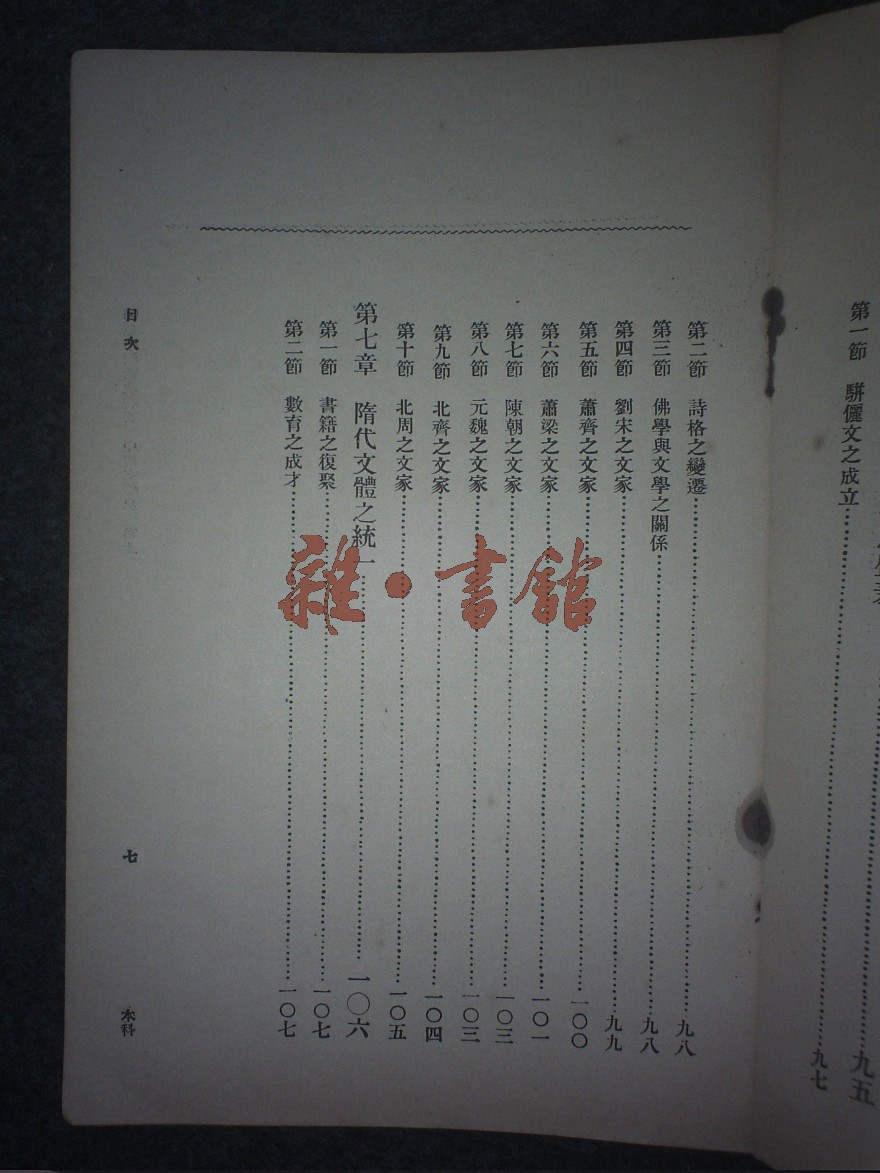 九五
第一節　駢儷文之成立……九七
第二節　詩格之變遷……九八
第三節　佛學與文學之關係……九八
第四節　劉宋之文家……九九
第五節　蕭齊之文家……一〇〇
第六節　蕭梁之文家……一〇一
第七節　陳朝之文家……一〇三
第八節　元魏之文家……一〇三
第九節　北齊之文家……一〇四
第十節　北周之文家……一〇五
第七章　隋代文體之統一……一〇六
第一節　書籍之復聚……一〇七
第二節　數育之成才……一〇七
目次　七　本科
雜·書館